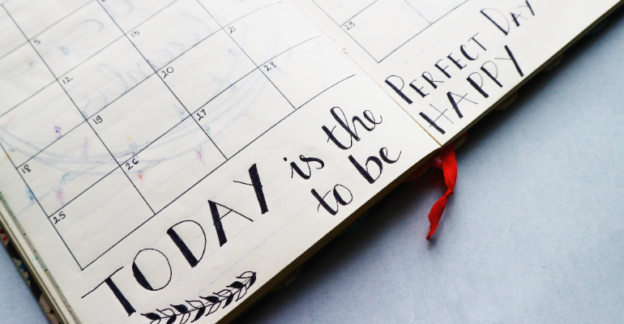 5
12
18 19 20 21
25 26 27 28
TODAY is the PERFECT DAY
to be HAPPY